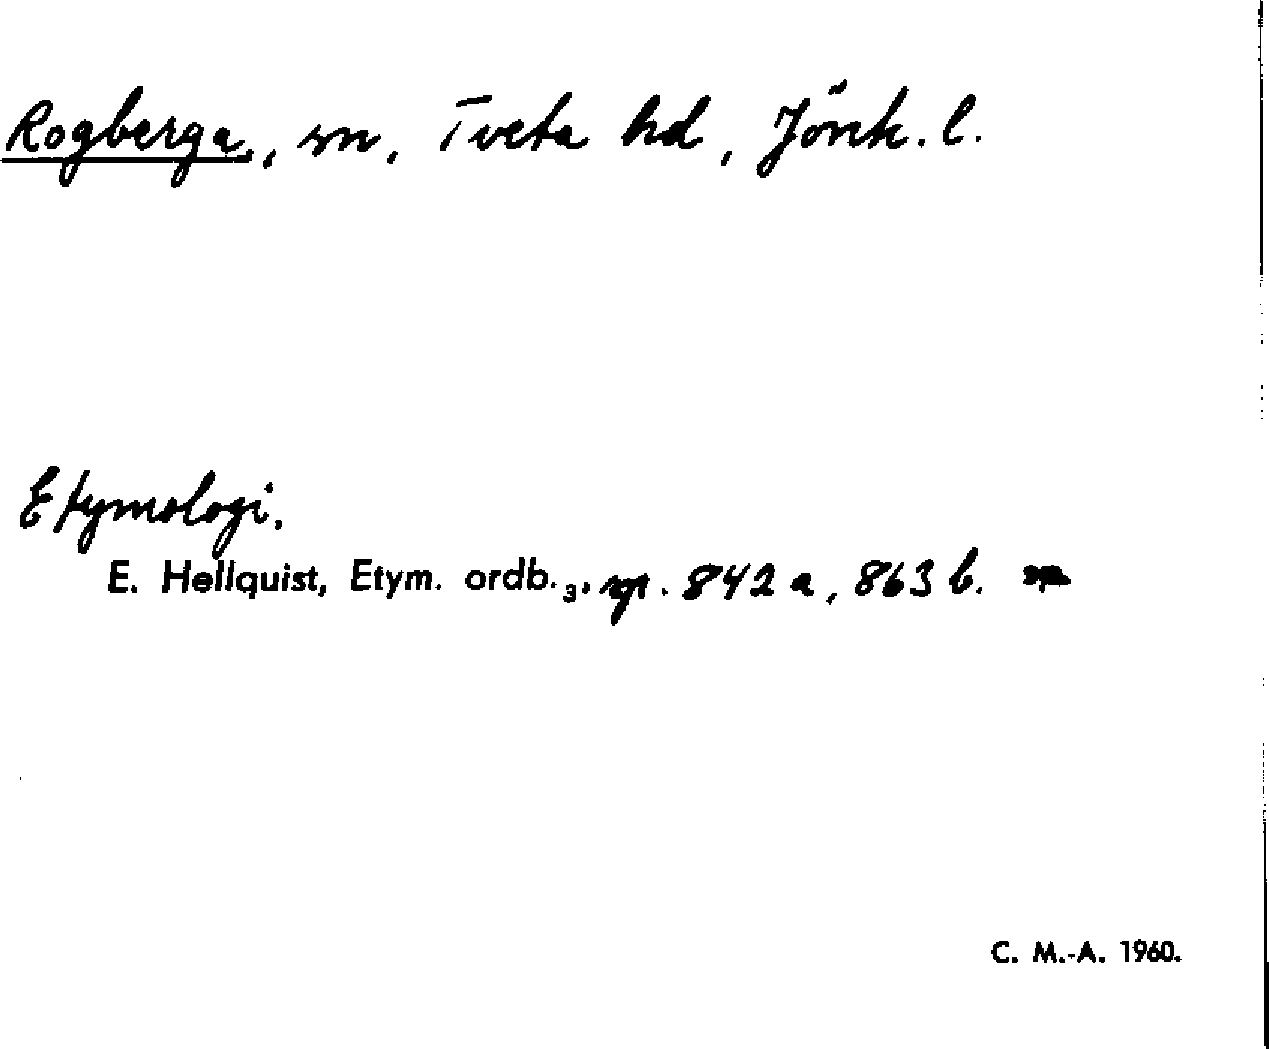 Rogberga, sn, Tveta hd, Jönk. l.
Etymologi.
E. Hellquist, Etym. ordb. 3, sp. 842 a, 863 b.
C. M.-A. 1960.